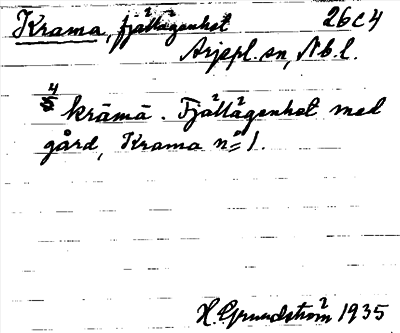 Krama, fjällägenhet 26C4
Arjepl. sn, Nb. l.
4 krāmā. Fjällägenhet med
gård, Krama nº 1.
H. Grundström 1935